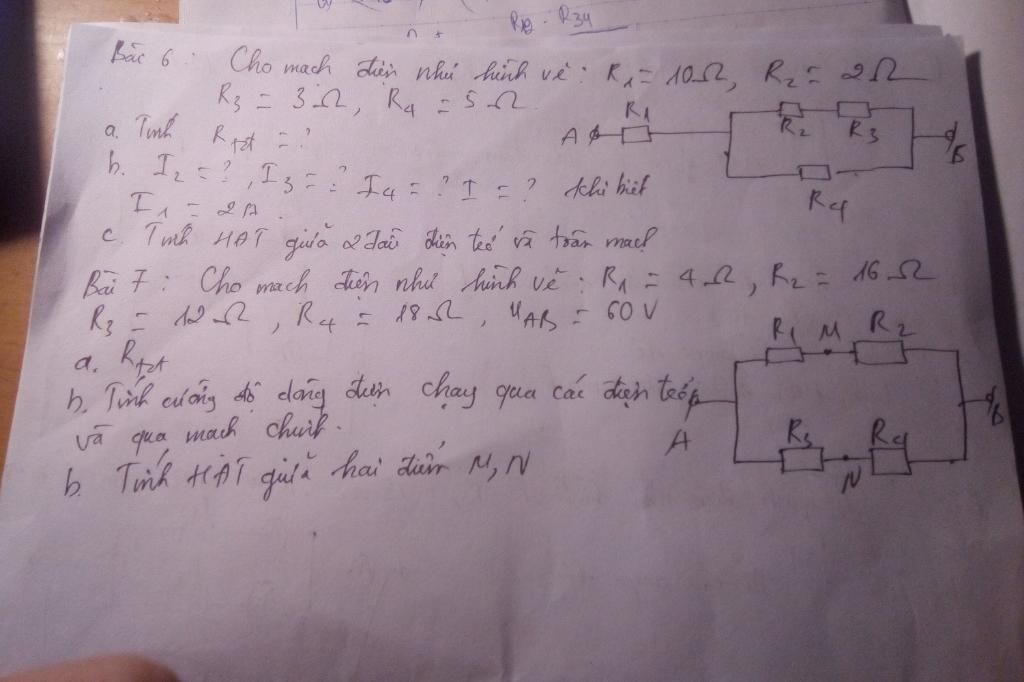 R12 . R34
Bài 6 : Cho mạch điện như hình vẽ : R1 = 10Ω, R2 = 2Ω
R3 = 3Ω, R4 = 5Ω
a. Tính Rtđ = ?
b. I2 = ?, I3 = ? I4 = ? I = ? khi biết
I1 = 2A.
A R1 R2 R3 B
R4
c. Tính HĐT giữa 2 đầu điện trở và toàn mạch
Bài 7 : Cho mạch điện như hình vẽ : R1 = 4Ω, R2 = 16Ω
R3 = 12Ω, R4 = 18Ω, UAB = 60V
a. Rtđ
b. Tính cường độ dòng điện chạy qua các điện trở
và qua mạch chính.
b. Tính HĐT giữa hai điểm M, N
R1 M R2
A B
R3 N R4